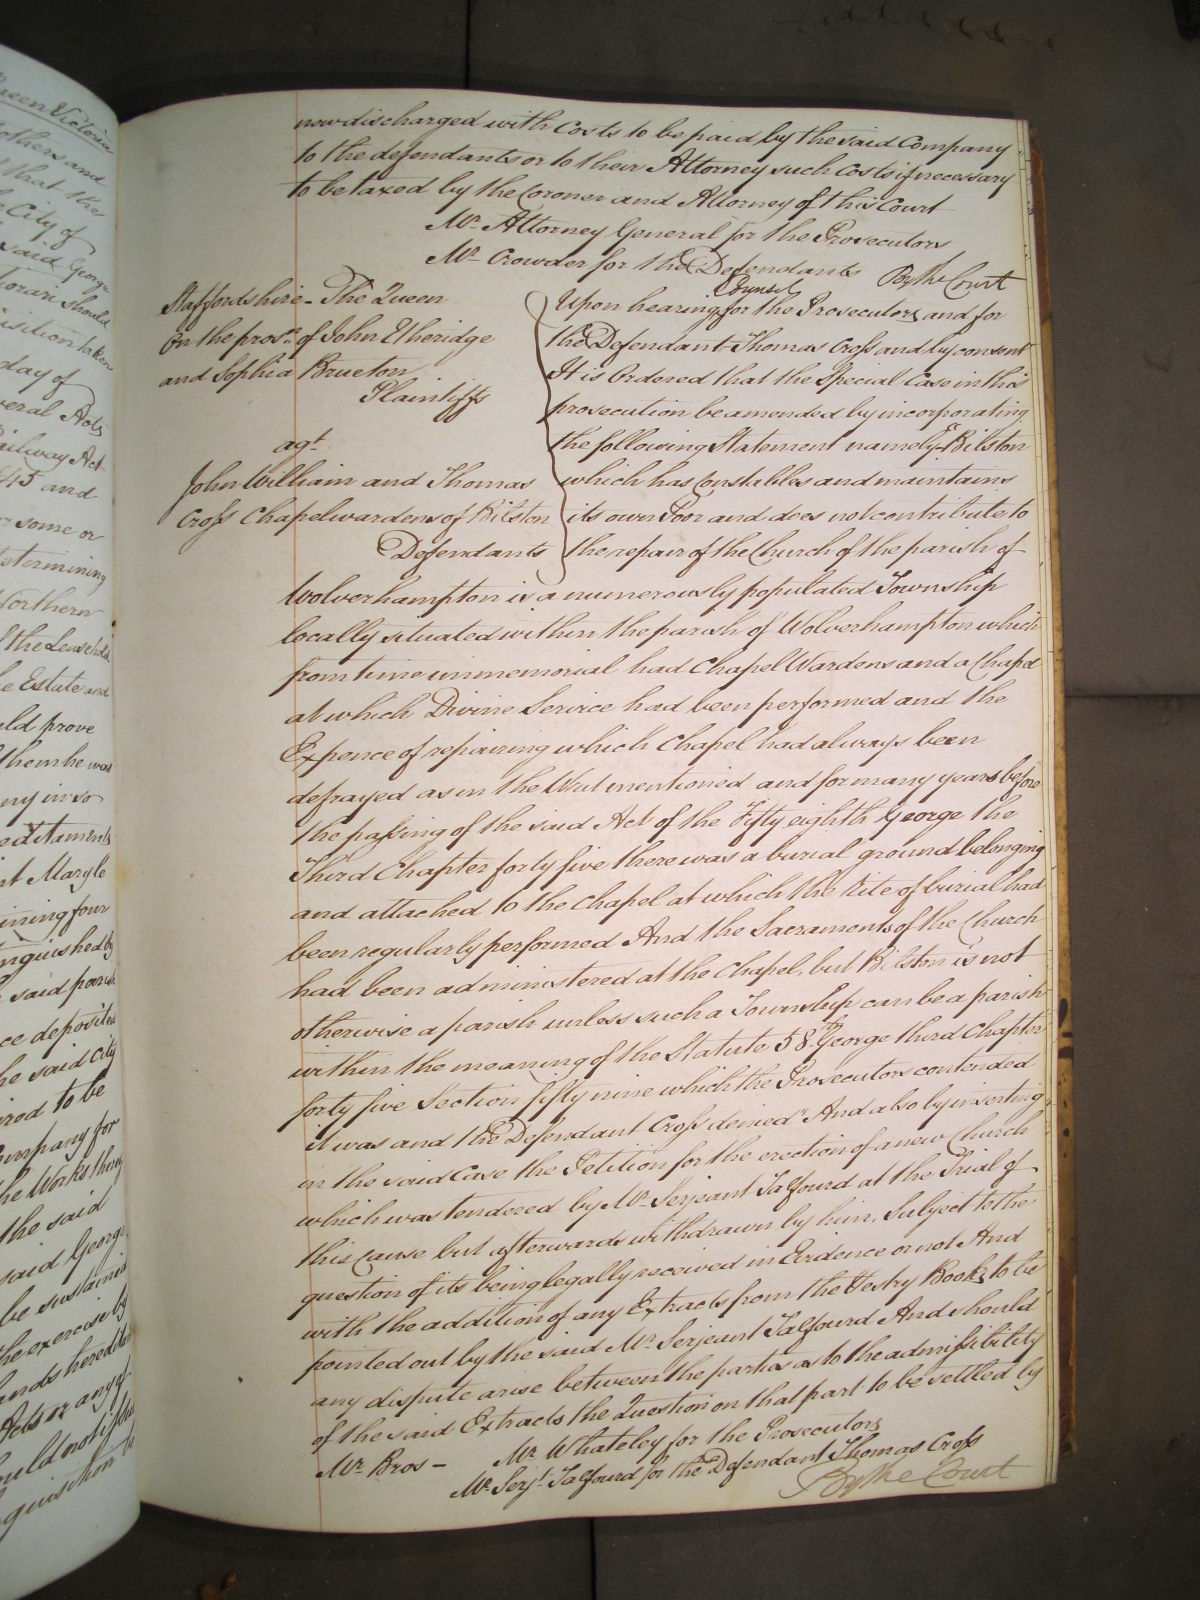 Queen Victoria
others and
that the
City of
said George
should
isition taken
day of
veral Acts
ailway Act
45 and
or some or
etermining
Northern
the Leasehold
e Estate and
uld prove
them he was
ny in so
editaments
nt Maryle
ining four
nguished by
said parish
ce deposited
he said City
ired to be
ompany for
the Works thereof
the said
said George
be sustained
the exercise by
ands heredita
Acts or any of
ould not if the
quisition to
now discharged with Costs to be paid by the said Company
to the defendants or to their Attorney such Costs if necessary
to be taxed by the Coroner and Attorney of this Court
Mr. Attorney General for the Prosecutors
Mr. Crowder for the Defendants By the Court
Staffordshire - The Queen
On the prosn. of John Etheridge
and Sophia Brueton
Plaintiffs
agt.
John William and Thomas
Cross Chapelwardens of Bilston
Defendants
Upon hearing Counsel for the Prosecutors and for
the Defendant Thomas Cross and by consent
It is Ordered that the Special Case in this
prosecution be amended by incorporating
the following Statement namely "Bilston
which has Constables and maintains
its own Poor and does not contribute to
the repair of the Church of the parish of
Wolverhampton is a numerously populated Township
locally situated within the parish of Wolverhampton which
from time immemorial had Chapel Wardens and a Chapel
at which Divine Service had been performed and the
Expence of repairing which Chapel had always been
defrayed as in the Writ mentioned and for many years before
the passing of the said Act of the Fifty eighth George the
Third Chapter forty five there was a burial ground belonging
and attached to the Chapel at which the Rite of burial had
been regularly performed And the Sacraments of the Church
had been administered at the Chapel, but Bilston is not
otherwise a parish unless such a Township can be a parish
within the meaning of the Statute 58th George third Chapter
forty five Section fifty nine which the Prosecutors contended
it was and the Defendant Cross denied" And also by inserting
in the said Case the Petition for the erection of a new Church
which was tendered by Mr. Serjeant Talfourd at the Trial of
this Cause but afterwards withdrawn by him, Subject to the
question of its being legally received in Evidence or not And
with the addition of any Extracts from the Vestry Books to be
pointed out by the said Mr. Serjeant Talfourd And should
any dispute arise between the parties as to the admissibility
of the said Extracts the Question on that part to be settled by
Mr. Bros - Mr. Whateley for the Prosecutors
Mr. Serjt. Talfourd for the Defendant Thomas Cross
By the Court